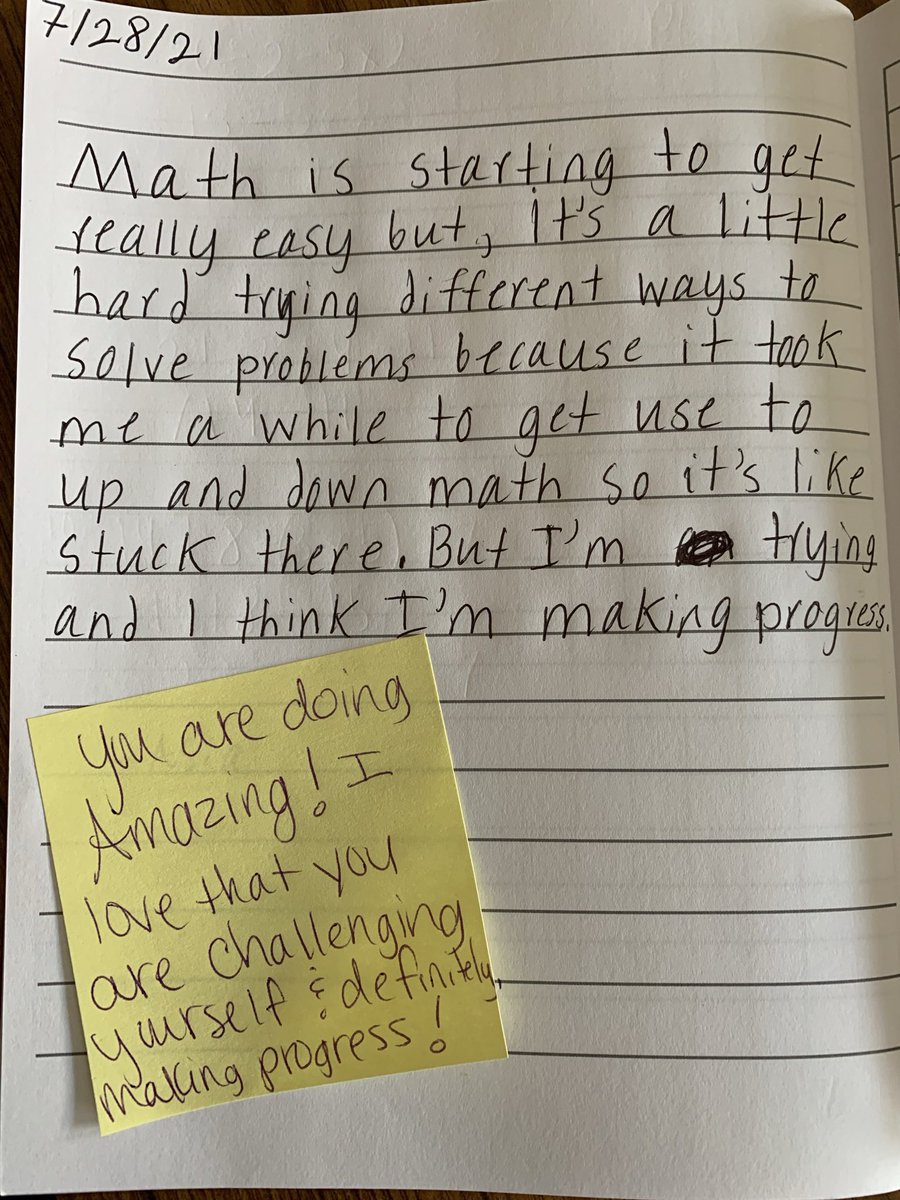 7/28/21
Math is starting to get
really easy but, it's a little
hard trying different ways to
solve problems because it took
me a while to get use to
up and down math so it's like
stuck there. But I'm trying
and I think I'm making progress.
You are doing
Amazing! I
love that you
are challenging
yourself & definitely
making progress!